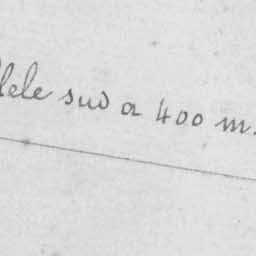 llele sud a 400 m.